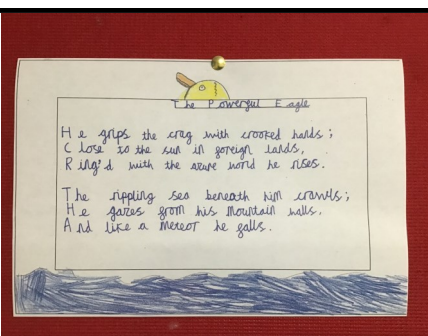 The Powerful Eagle
He grips the crag with crooked hands;
Close to the sun in foreign lands,
Ring'd with the azure world he rises.
The rippling sea beneath him crawls;
He gazes from his mountain walls,
And like a meteor he falls.